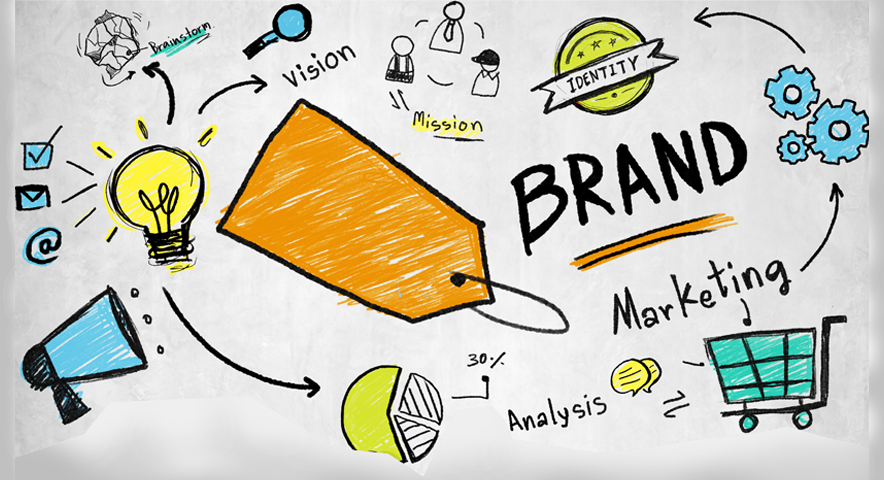 Brainstorm.
vision
Mission
IDENTITY
BRAND
Marketing
30%
Analysis
@